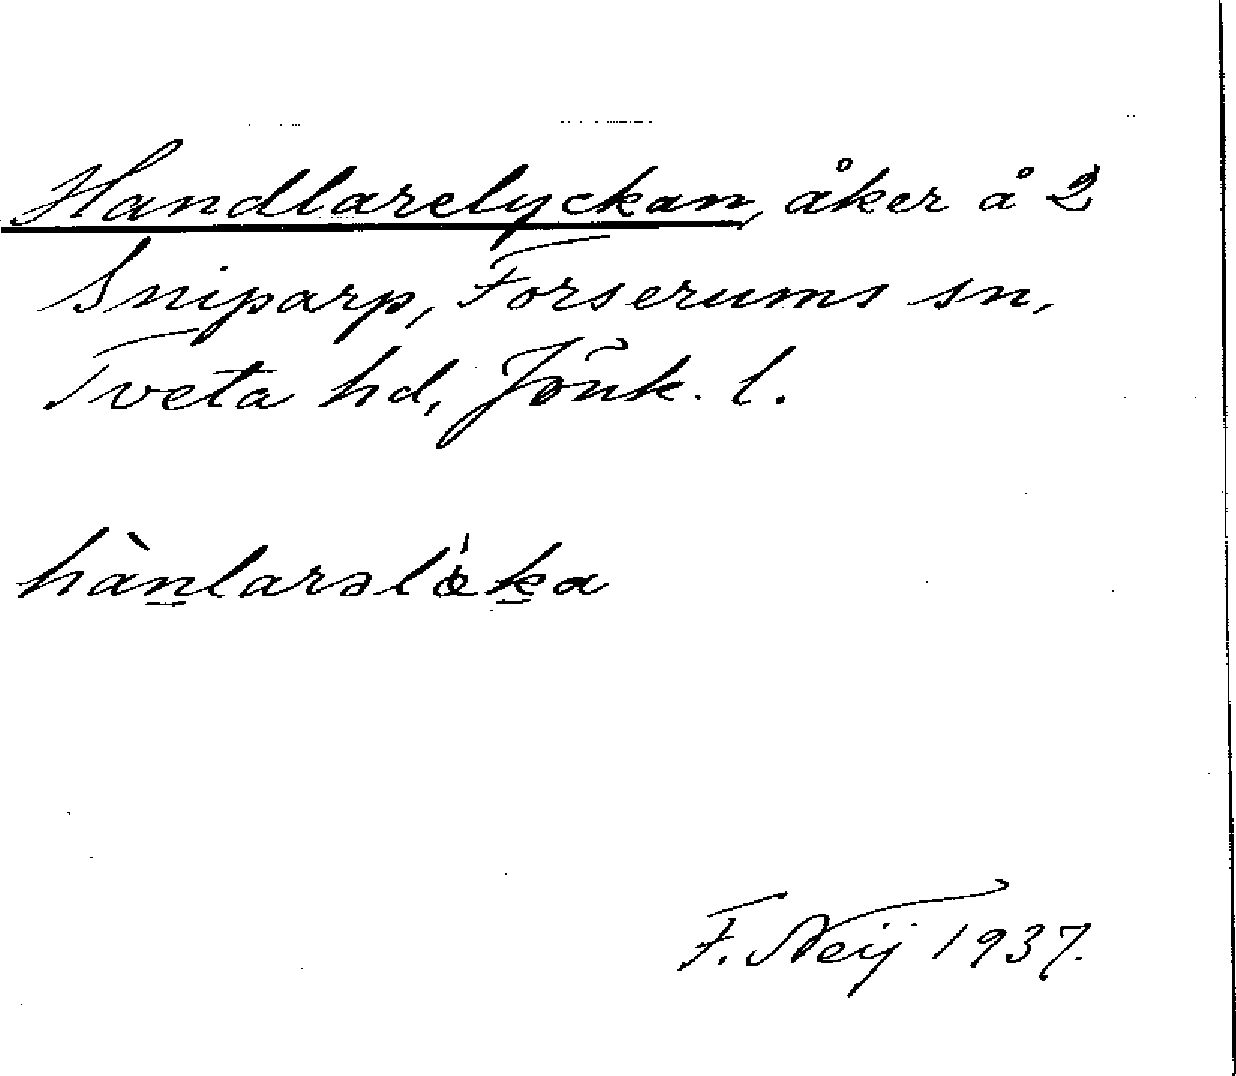 Handlarelyckan, åker å 2
Sniparp, Forserums sn,
Tveta hd, Jönk. l.
hànlarəlö́ka
F. Neij 1937.